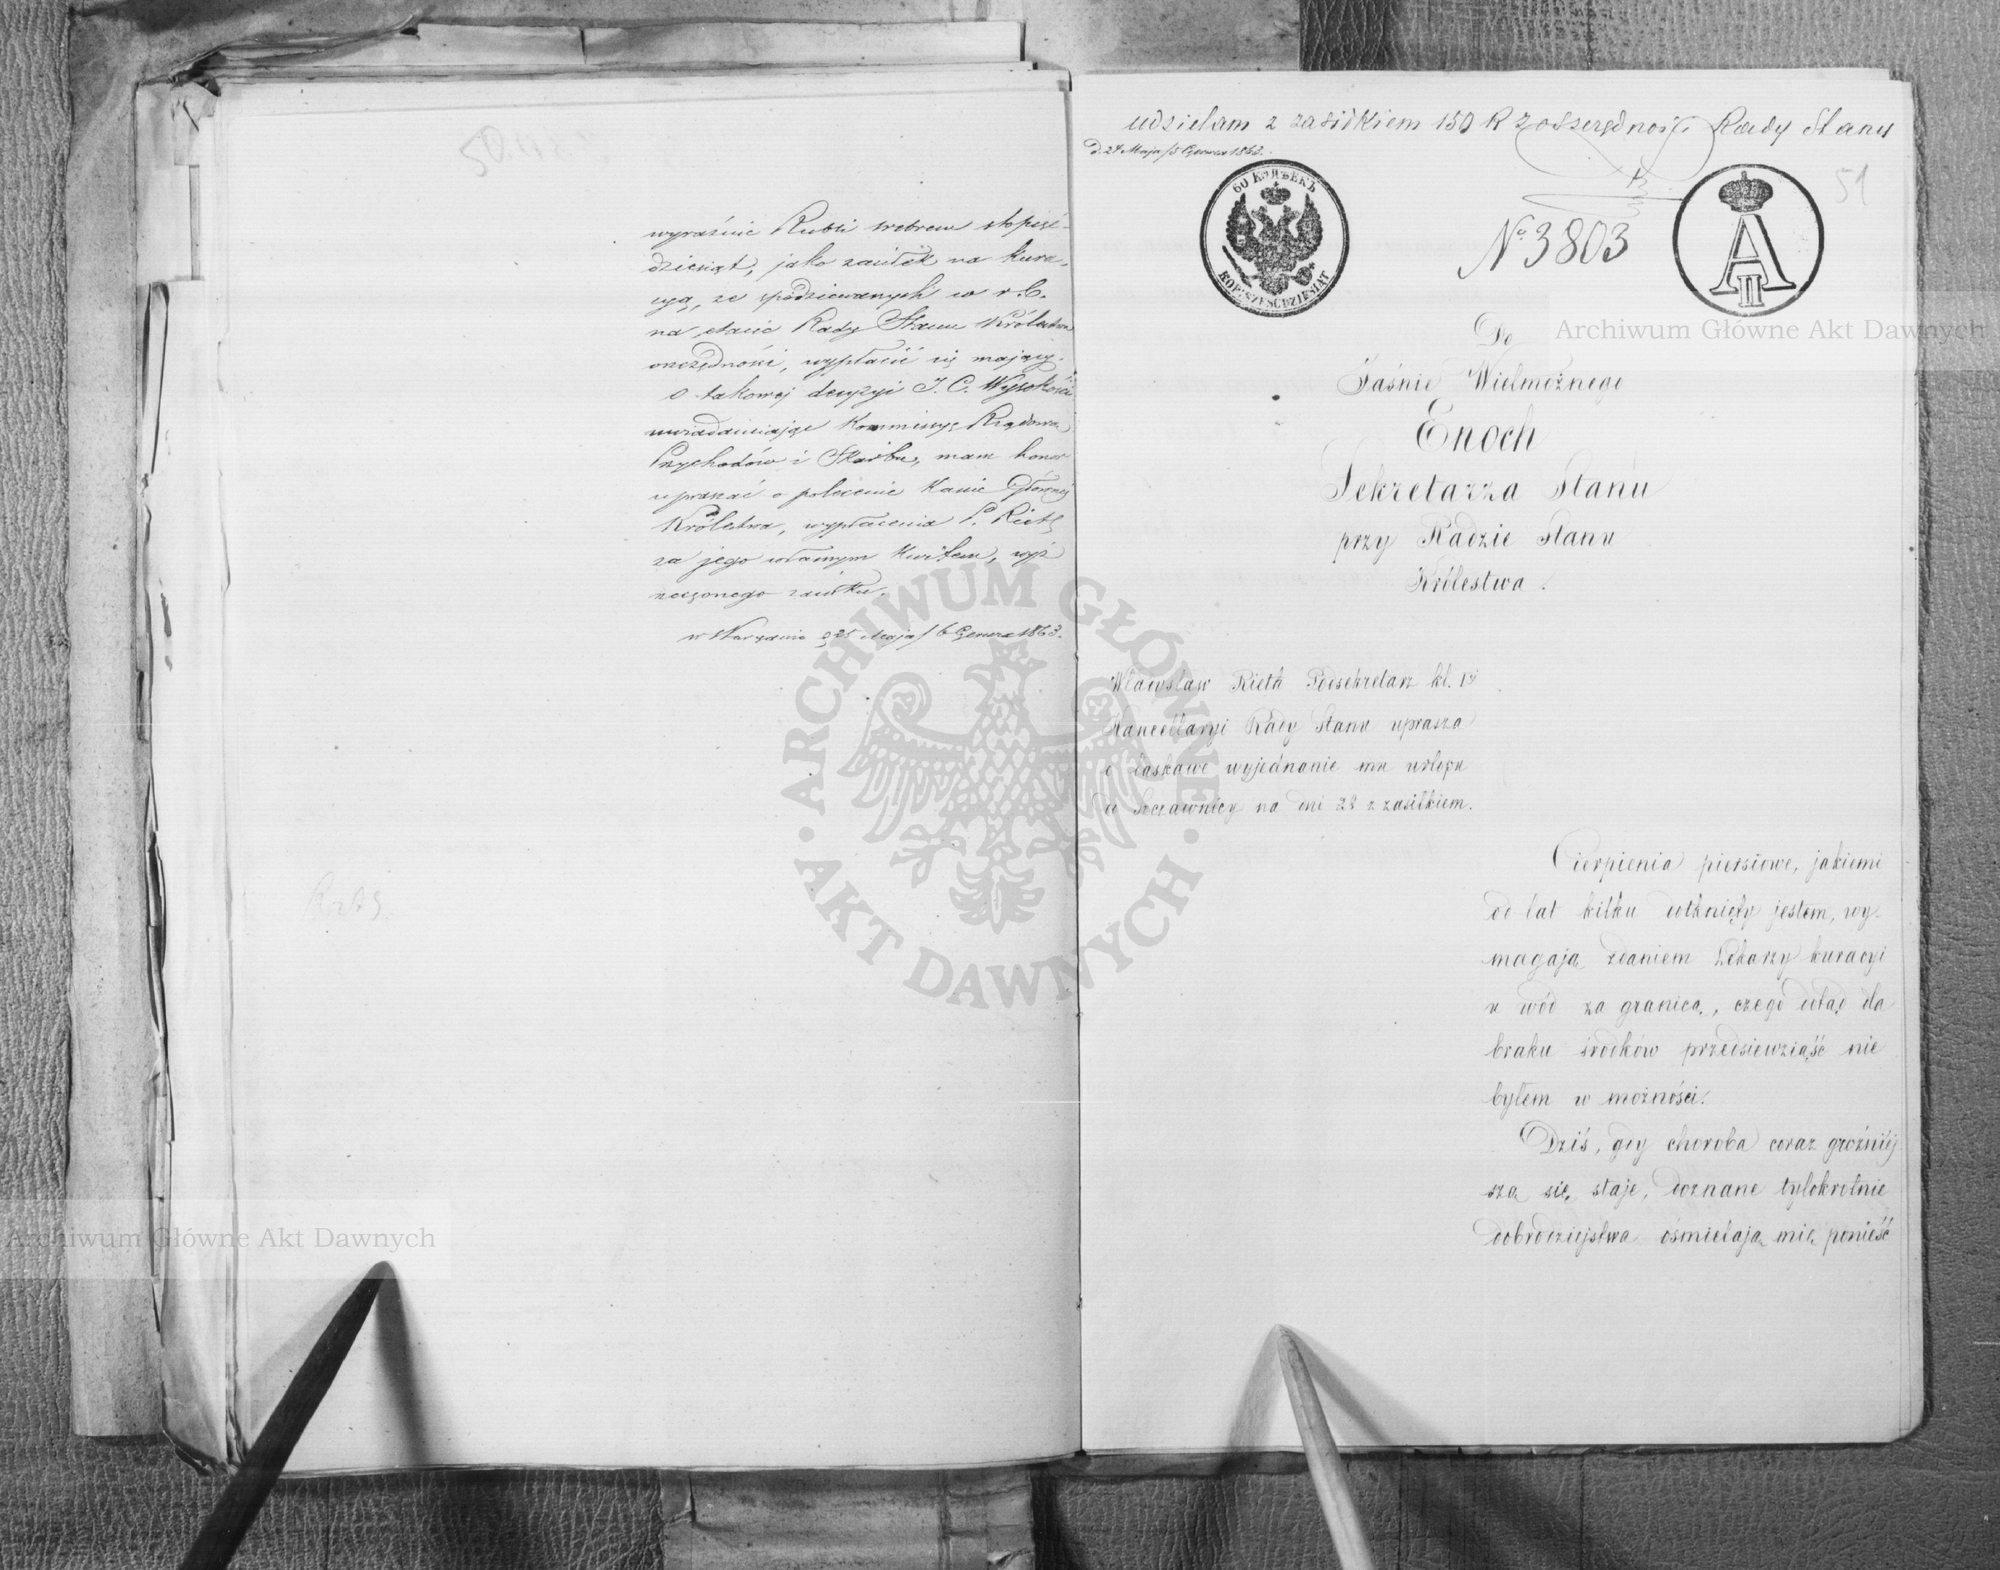 wyraźnie Rubli srebrem stopięć-
dziesiąt, jako zasiłek na kura-
cyą, ze spodziewanych w r. b.
na etacie Rady Stanu Królestwa
oszczędności, wypłacić się mający.
O takowej decyzyi J. C. Wysokości
uwiadamiając Kommissyę Rządową
Przychodów i Skarbu, mam honor
upraszać o polecenie Kassie Głównej
Królestwa, wypłacenia P. Rietz
za jego własnym kwitem, wyż
rzeczonego zasiłku.
w Warszawie d 25 Maja/6 Czerwca 1863.
udzielam z zasiłkiem 150 R z oszczędności Rady Stanu
d. 24 Maja/5 Czerwca 1863.
51
60 КОПѢЕКЪ
KOP: SZEŚĆDZIESIĄT
A II
N° 3803
Do
Jaśnie Wielmożnego
Enoch
Sekretarza Stanu
przy Radzie Stanu
Królestwa.
Władysław Rietz Podsekretarz kl. 1éj
Kancellaryi Rady Stanu uprasza
o łaskawe wyjednanie mu urlopu
do Szczawnicy na dni 28 z zasiłkiem.
Cierpienia piersiowe, jakiemi
od lat kilku dotknięty jestem, wy-
magają zdaniem Lekarzy kuracyi
u wód za granicą, czego dotąd dla
braku środków przedsiewziąść nie
byłem w możności.
Dziś, gdy choroba coraz groźniéj
szą się staje, doznane tylokrotnie
dobrodziejstwa ośmielają mię ponieść
Archiwum Główne Akt Dawnych
Archiwum Główne Akt Dawnych
ARCHIWUM GŁÓWNE · AKT DAWNYCH ·